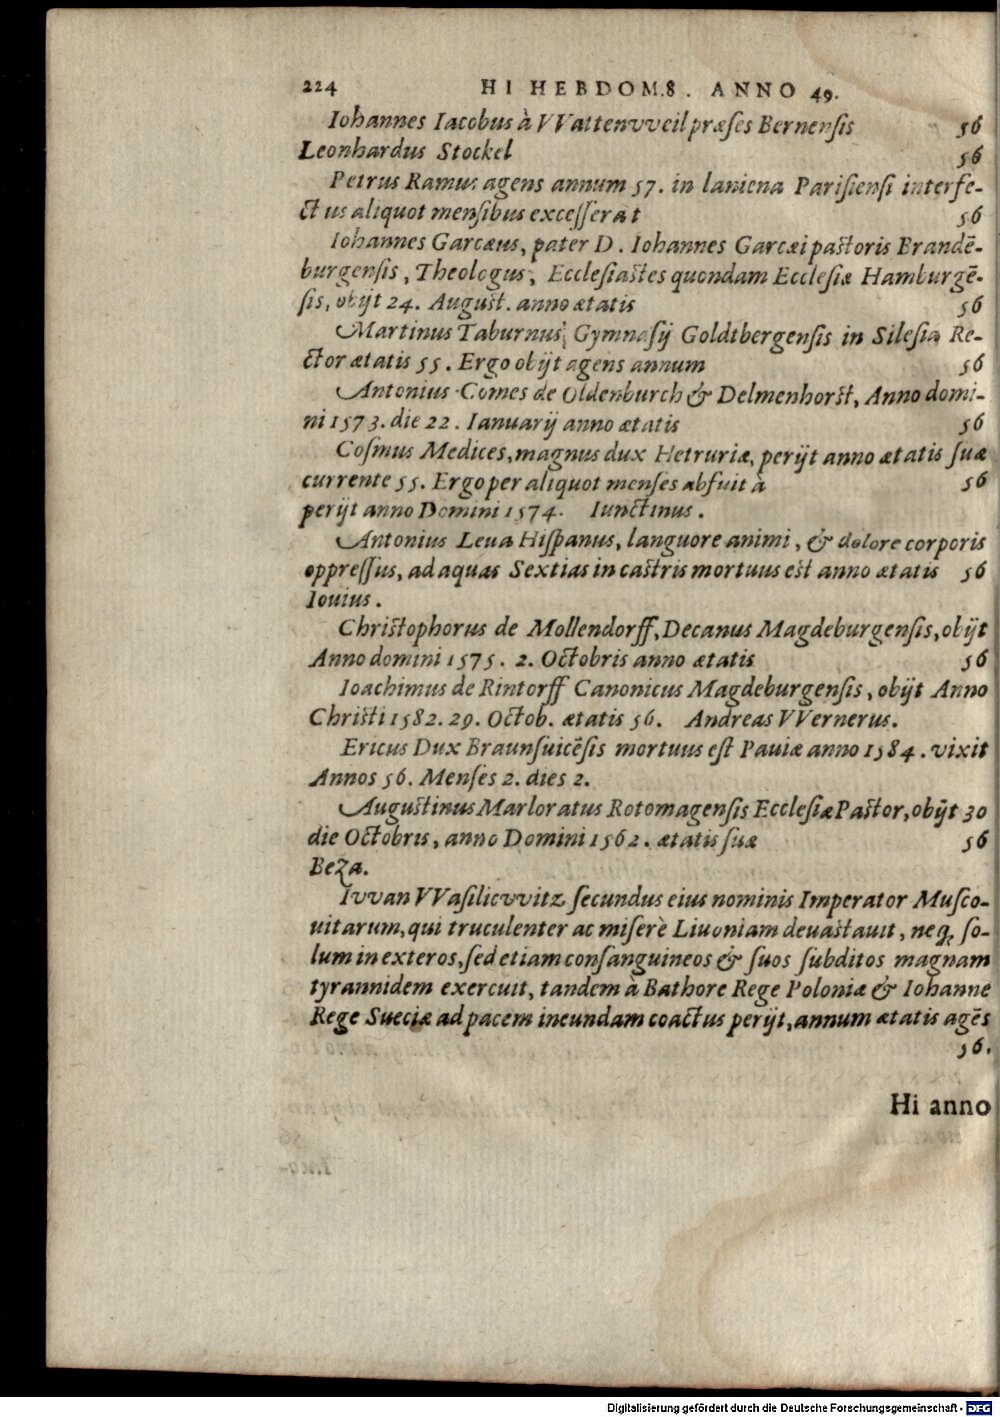 224 HI HEBDOM.8. ANNO 49.
Iohannes Iacobus à VVattenvveil præſes Bernenſis 56
Leonhardus Stockel 56
Petrus Ramus agens annum 57. in laniena Pariſienſi interfe-
ctus aliquot menſibus exceſſerat 56
Iohannes Garcæus, pater D. Iohannes Garcæi paſtoris Brandē-
burgenſis, Theologus, Eccleſiaſtes quondam Eccleſiæ Hamburgē-
ſis, obijt 24. Auguſt. anno ætatis 56
Martinus Taburnus, Gymnaſij Goldtbergenſis in Sileſia Re-
ctor ætatis 55. Ergo obijt agens annum 56
Antonius Comes de Oldenburch & Delmenhorſt, Anno domi-
ni 1573. die 22. Ianuarij anno ætatis 56
Coſmus Medices, magnus dux Hetruriæ, perijt anno ætatis ſuæ
currente 55. Ergo per aliquot menſes abfuit à 56
perijt anno Domini 1574. Iunctinus.
Antonius Leua Hiſpanus, languore animi, & dolore corporis
oppreſſus, ad aquas Sextias in caſtris mortuus eſt anno ætatis 56
Iouius.
Chriſtophorus de Mollendorff, Decanus Magdeburgenſis, obijt
Anno domini 1575. 2. Octobris anno ætatis 56
Ioachimus de Rintorff Canonicus Magdeburgenſis, obijt Anno
Chriſti 1582. 29. Octob. ætatis 56. Andreas VVernerus.
Ericus Dux Braunſuicēſis mortuus eſt Pauiæ anno 1584. vixit
Annos 56. Menſes 2. dies 2.
Auguſtinus Marloratus Rotomagenſis Eccleſiæ Paſtor, obijt 30
die Octobris, anno Domini 1562. ætatis ſuæ 56
Beza.
Ivvan VVaſilicvvitz ſecundus eius nominis Imperator Muſco-
uitarum, qui truculenter ac miſerè Liuoniam deuaſtauit, neq; ſo-
lum in exteros, ſed etiam conſanguineos & ſuos ſubditos magnam
tyrannidem exercuit, tandem à Bathore Rege Poloniæ & Iohanne
Rege Sueciæ ad pacem ineundam coactus perijt, annum ætatis agēs
56.
Hi anno
Digitalisierung gefördert durch die Deutsche Forschungsgemeinschaft - DFG